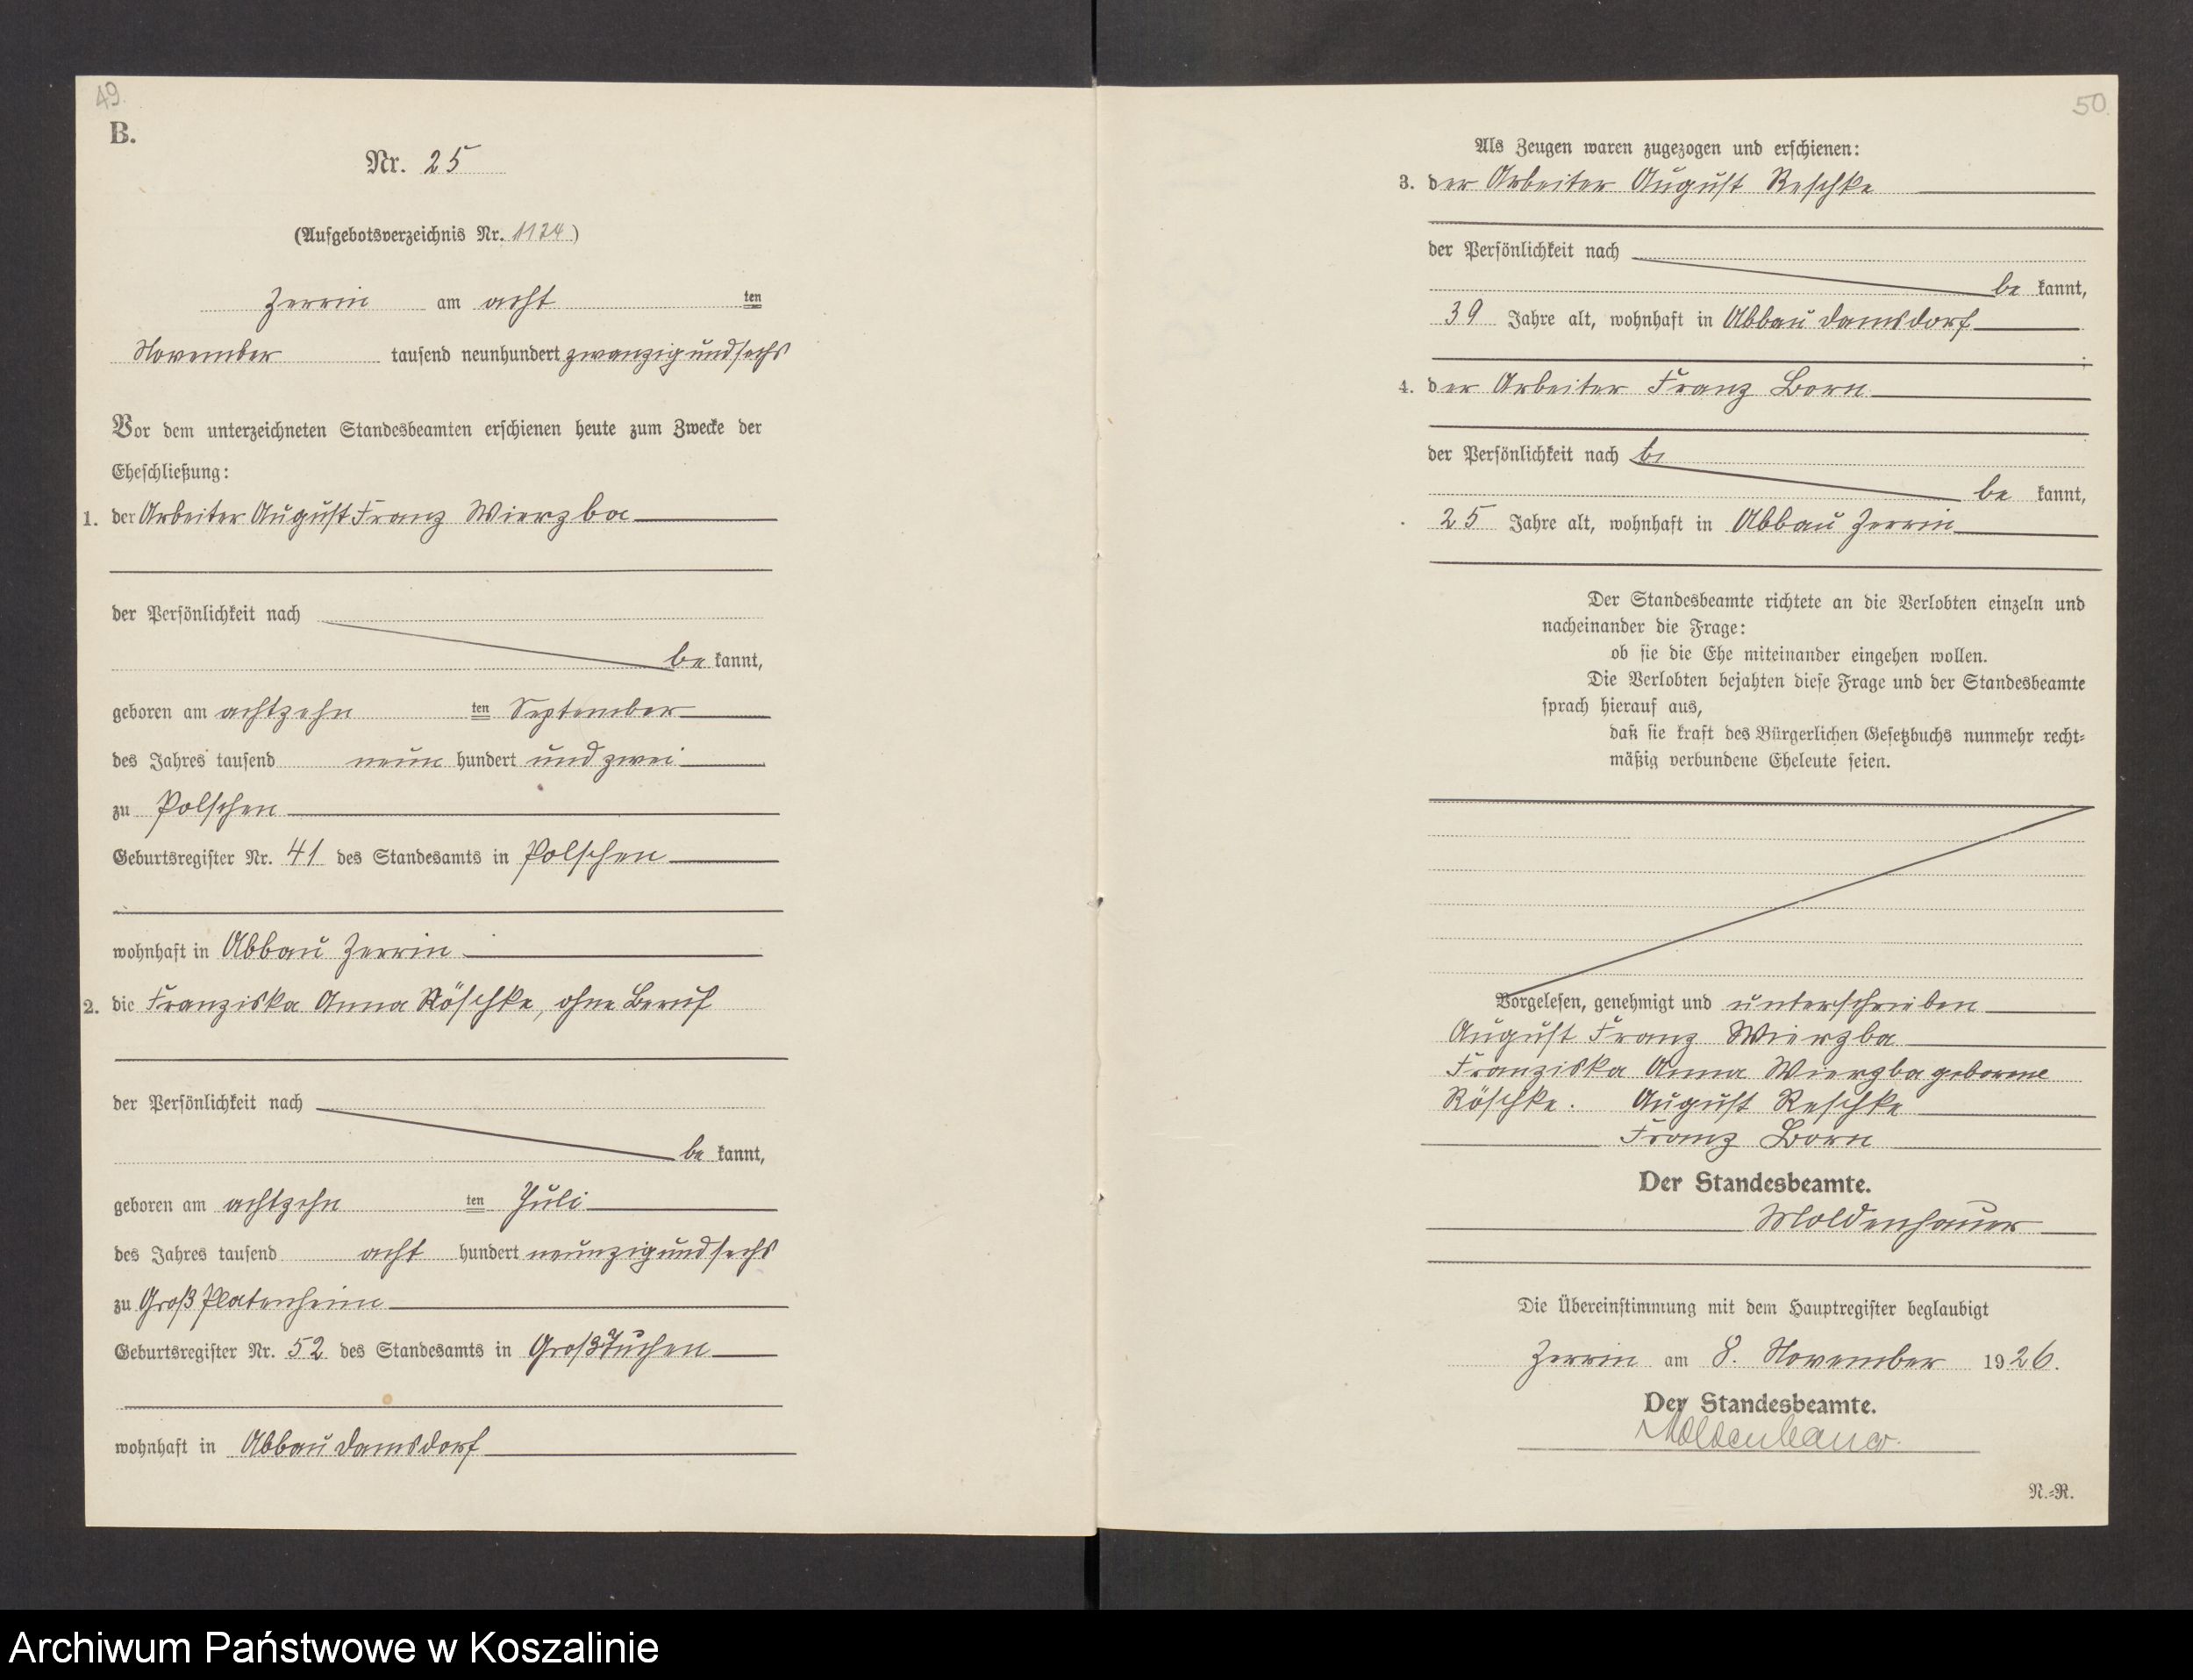 49.
B.
Nr. 25
(Aufgebotsverzeichnis Nr. 1124)
Zerrin am acht ten
November tausend neunhundert zwanzigundsechs
Vor dem unterzeichneten Standesbeamten erschienen heute zum Zwecke der
Eheschließung:
1. der Arbeiter August Franz Wierzba
der Persönlichkeit nach
be kannt,
geboren am achtzehn ten September
des Jahres tausend neun hundert und zwei
zu Polschen
Geburtsregister Nr. 41 des Standesamts in Polschen
wohnhaft in Abbau Zerrin
2. die Franziska Anna Röschke, ohne Beruf
der Persönlichkeit nach
be kannt,
geboren am achtzehn ten Juli
des Jahres tausend acht hundert neunzigundsechs
zu Groß Platenheim
Geburtsregister Nr. 52 des Standesamts in Groß Tuchen
wohnhaft in Abbau Damsdorf
50.
Als Zeugen waren zugezogen und erschienen:
3. der Arbeiter August Reschke
der Persönlichkeit nach
be kannt,
39 Jahre alt, wohnhaft in Abbau Damsdorf
4. der Arbeiter Franz Born
der Persönlichkeit nach be
be kannt,
25 Jahre alt, wohnhaft in Abbau Zerrin
Der Standesbeamte richtete an die Verlobten einzeln und
nacheinander die Frage:
ob sie die Ehe miteinander eingehen wollen.
Die Verlobten bejahten diese Frage und der Standesbeamte
sprach hierauf aus,
daß sie kraft des Bürgerlichen Gesetzbuchs nunmehr recht-
mäßig verbundene Eheleute seien.
Vorgelesen, genehmigt und unterschrieben
August Franz Wierzba
Franziska Anna Wierzba geborene
Röschke. August Reschke
Franz Born
Der Standesbeamte.
Moldenhauer
Die Übereinstimmung mit dem Hauptregister beglaubigt
Zerrin am 8. November 1926.
Der Standesbeamte.
Moldenhauer.
N.-R.
Archiwum Państwowe w Koszalinie